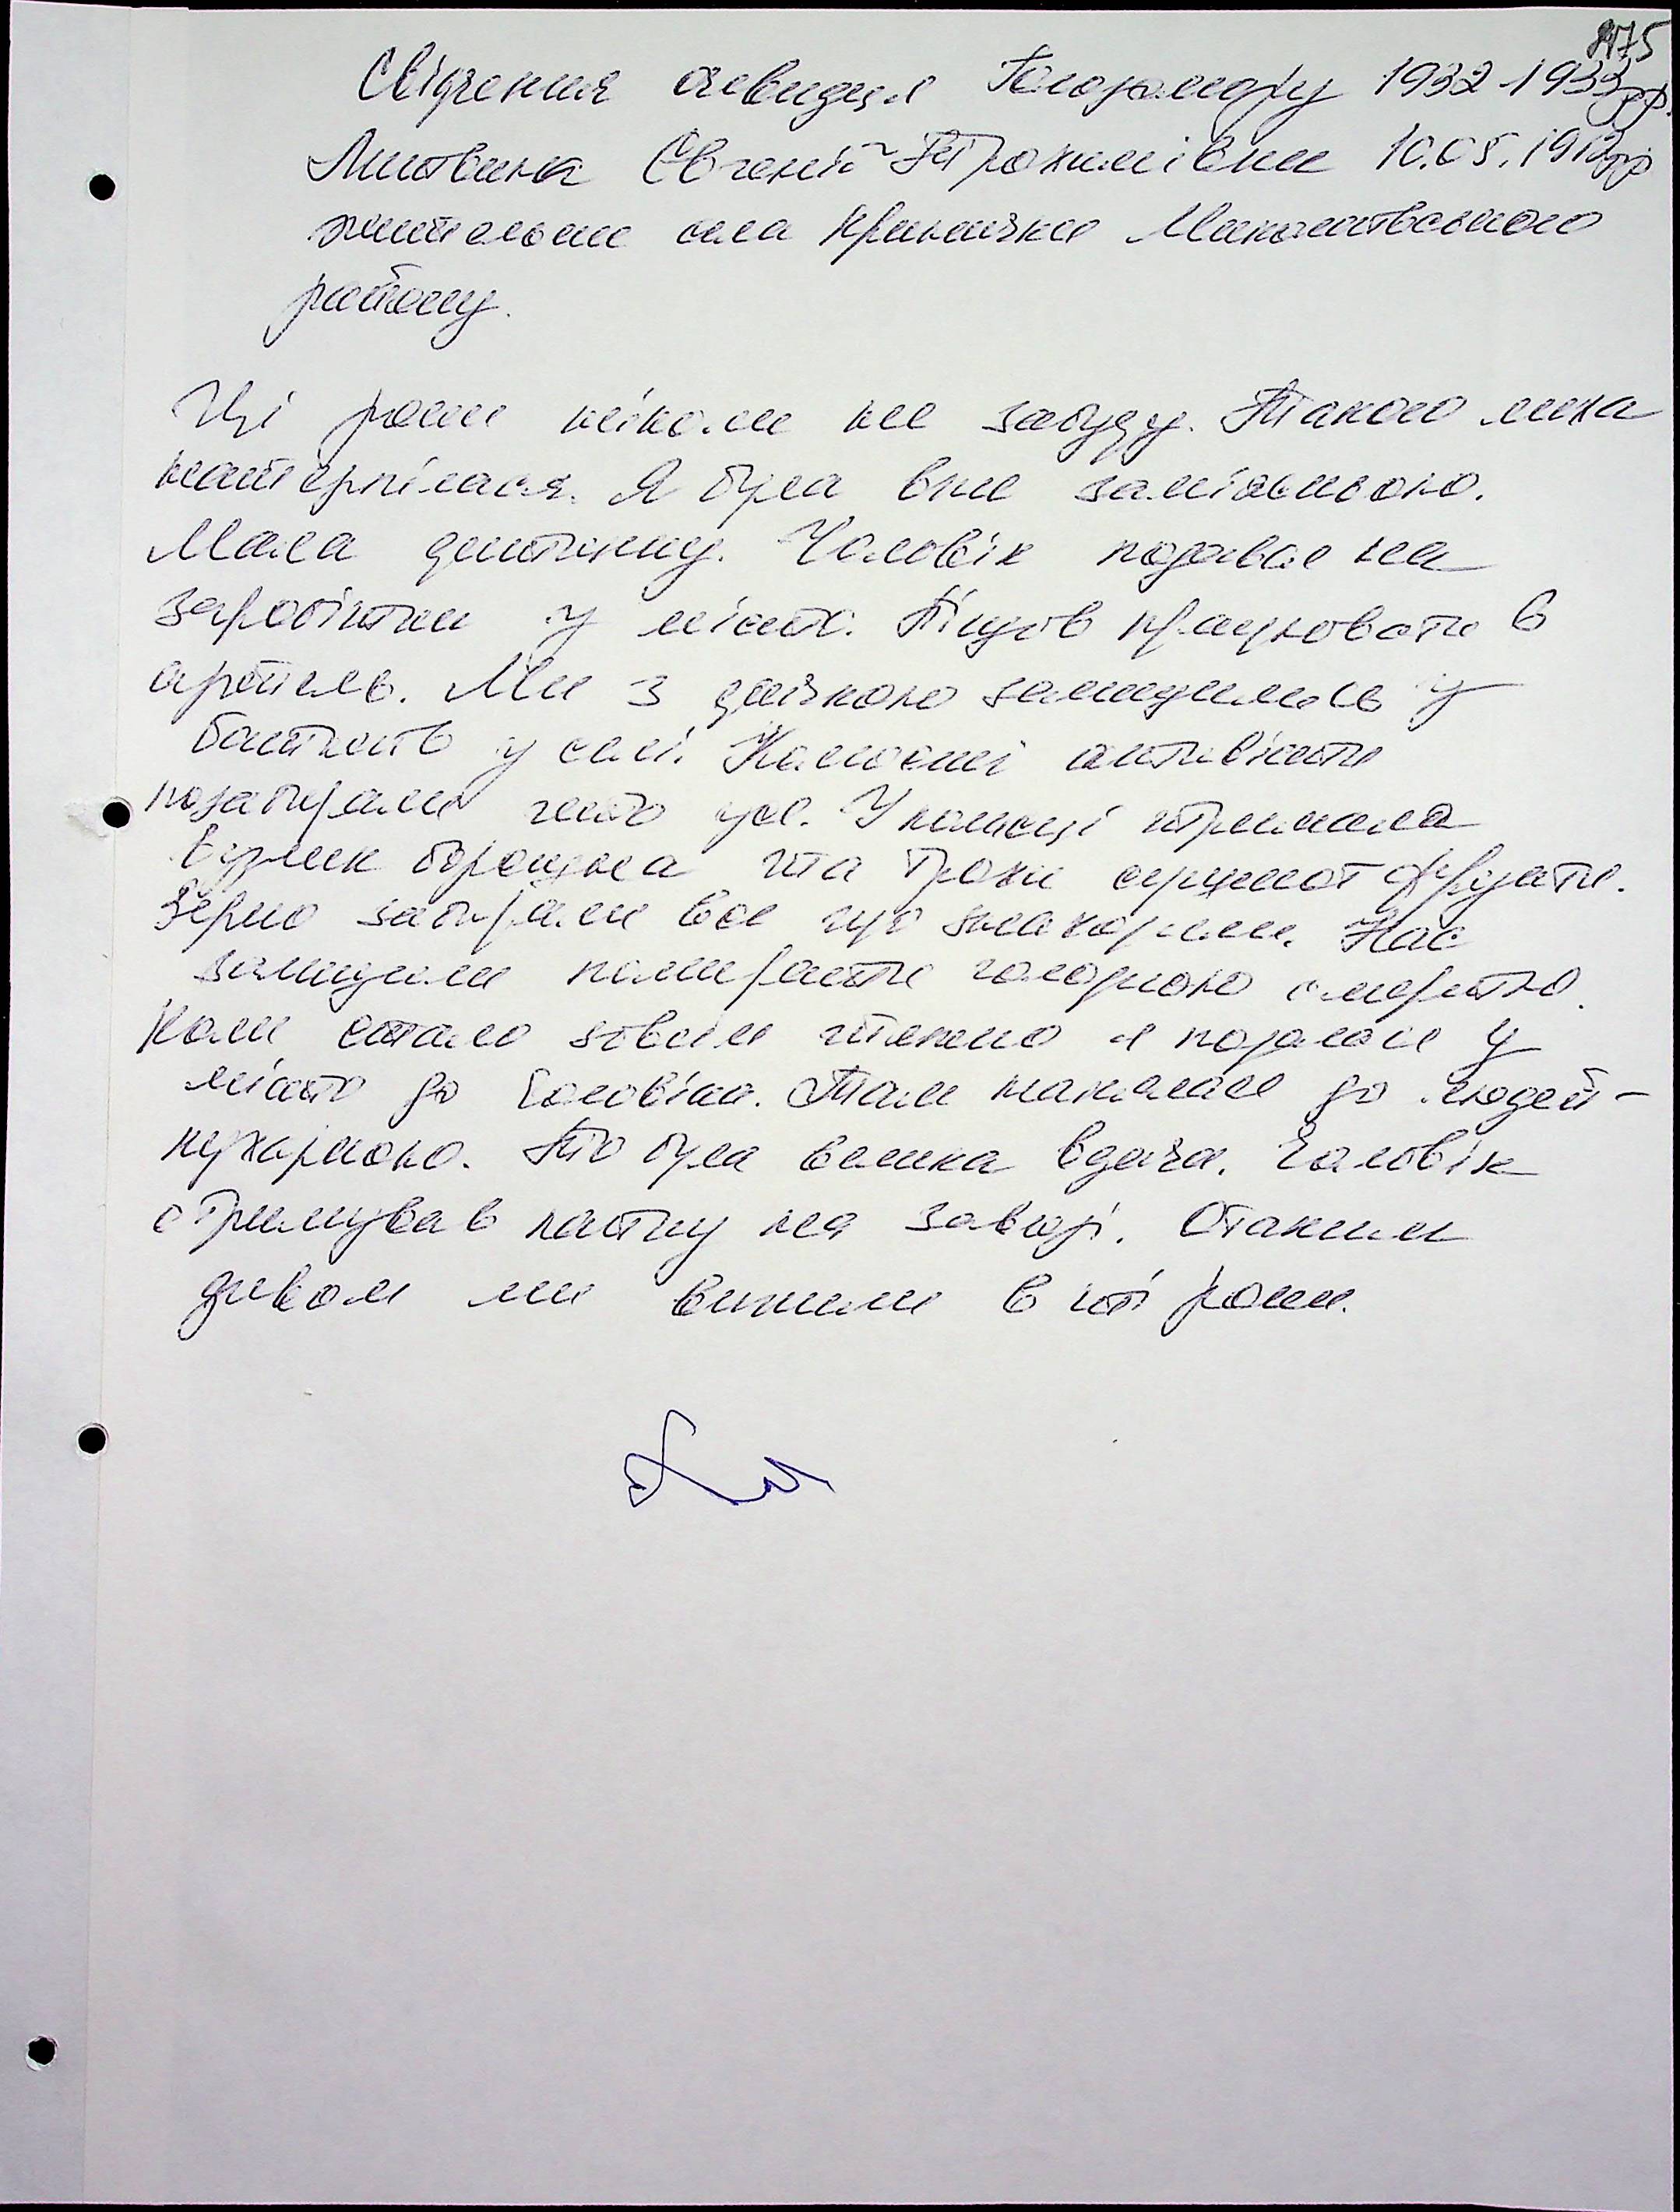 175
Свідчення очевидця Голодомору 1932-1933рр.
Литвина Євгенії Трохимівни 10.05.1912рр
жительки села Кринички Миколаївського
району.
Ці роки ніколи не забуду. Такого лиха
натерпілася. Я була вже заміжньою.
Мала дитинку. Чоловік подався на
заробітки у місто. Пішов працювати в
артіль. Ми з дочкою залишились у
батьків у селі. Комсомольці активісти
позабирали геть усе. У колисці тримала
вузлик борошна та трохи сушки фрукти.
Зерно забирали все що знаходили. Нас
залишили помирати голодною смертю.
Коли стало зовсім тяжко я подалася у
місто до чоловіка. Там найнялася до людей -
кухаркою. То була велика вдача. Чоловік
отримував пайку на заводі. Отаким
дивом ми вижили в ті роки.